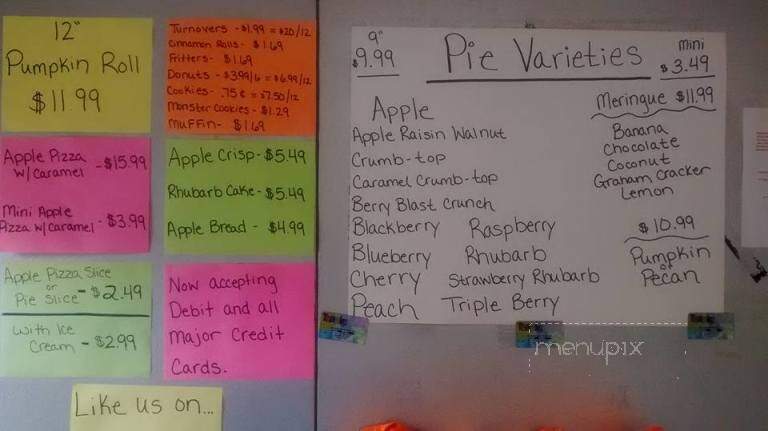 12"
Pumpkin Roll
$11.99
Turnovers - $1.99 = $20/12
Cinnamon Rolls - $1.69
Fritters - $1.69
Donuts - $3.99/6 = $6.99/12
Cookies - .75¢ = $7.50/12
Monster Cookies - $1.29
Muffin - $1.69
Apple Pizza
w/ Caramel - $15.99
Mini Apple
Pizza w/ Caramel - $3.99
Apple Crisp - $5.49
Rhubarb Cake - $5.49
Apple Bread - $4.99
Apple Pizza Slice
or
Pie Slice - $2.49
With Ice
Cream - $2.99
Now accepting
Debit and all
Major Credit
Cards.
Like us on...
9"
$9.99
Pie Varieties
mini
$3.49
Apple
Apple Raisin Walnut
Crumb-top
Caramel Crumb-top
Berry Blast Crunch
Blackberry Raspberry
Blueberry Rhubarb
Cherry Strawberry Rhubarb
Peach Triple Berry
Meringue $11.99
Banana
Chocolate
Coconut
Graham Cracker
Lemon
$10.99
Pumpkin
or
Pecan
menupix